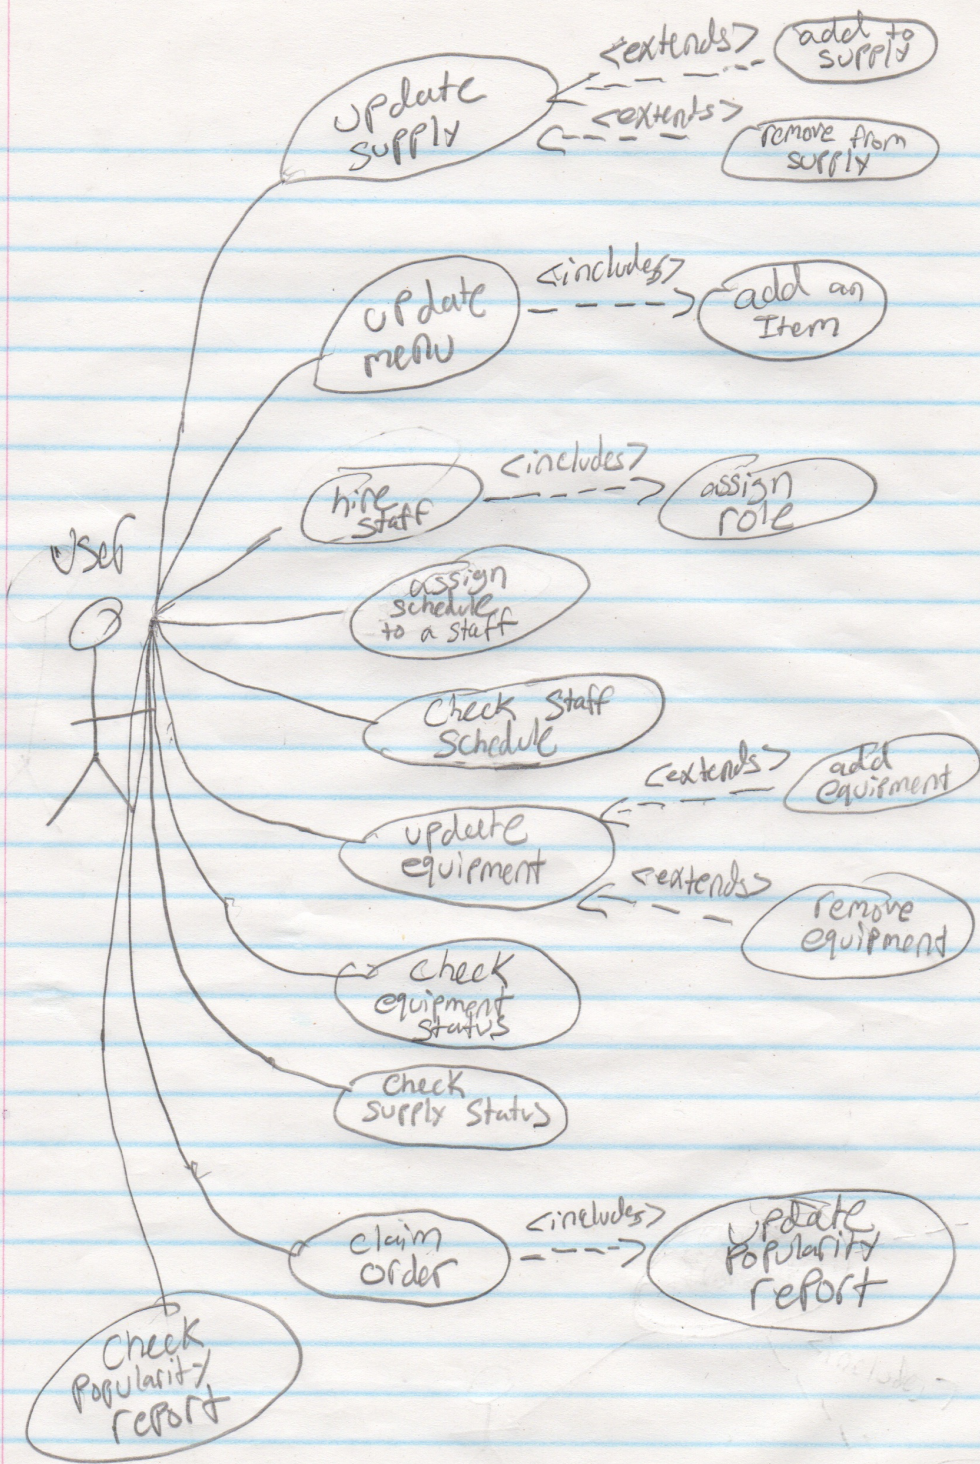 <extends>
add to
supply
update
supply
<extends>
remove from
supply
update
menu
<includes>
add an
Item
hire
staff
<includes>
assign
role
User
assign
schedule
to a staff
Check Staff
Schedule
<extends>
add
equipment
update
equipment
<extends>
remove
equipment
Check
equipment
status
Check
supply status
claim
order
<includes>
update
popularity
report
Check
popularity
report